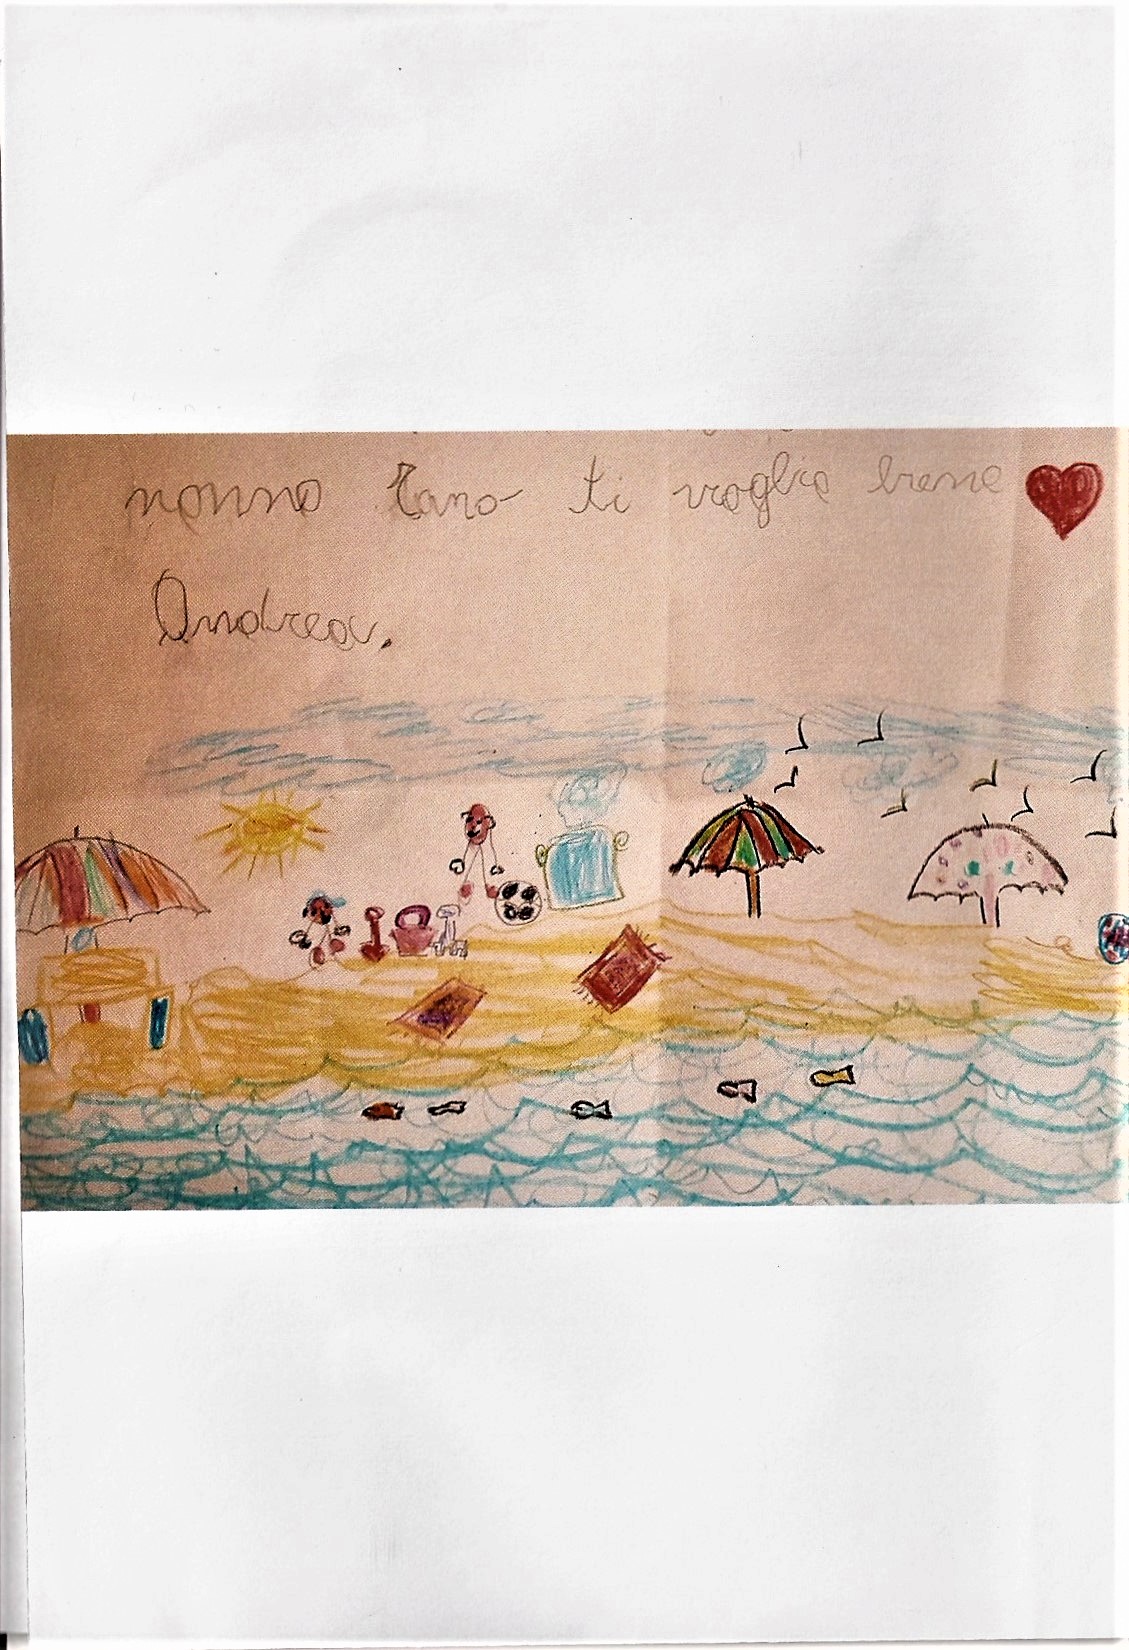 nonno Tano ti voglio bene
Andrea.